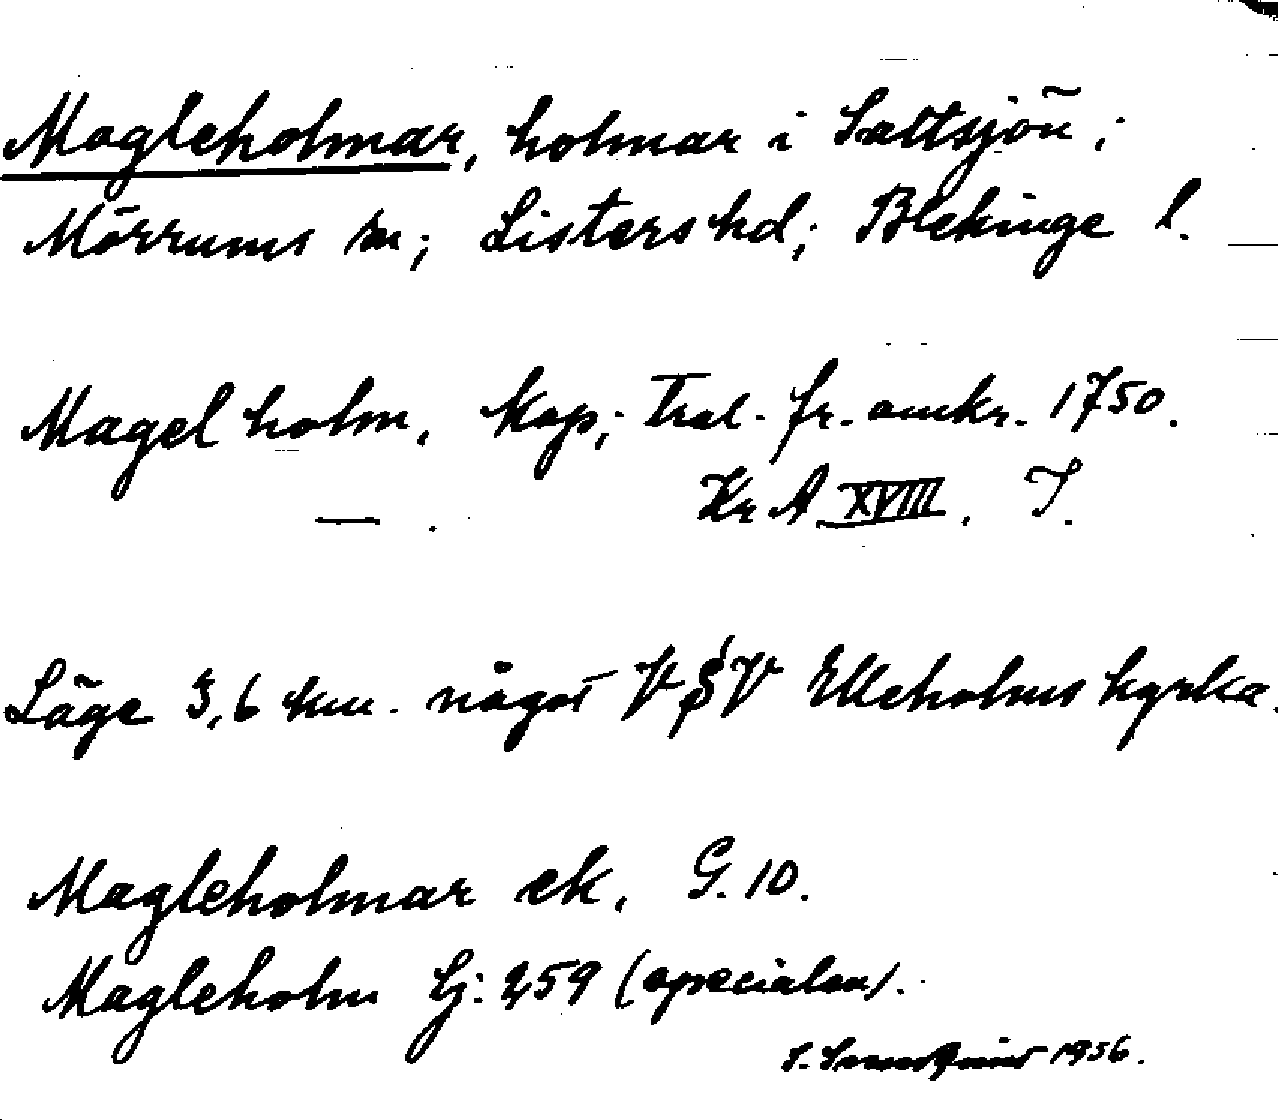 Magleholmar, holmar i Saltsjön;
Mörrums sn; Listers hd; Blekinge l.
Magelholm. Kop; tral. fr. omkr. 1750.
Kr A XVIII. I.
Läge 3,6 km. något V §V Elleholms kyrka.
Magleholmar ek. G. 10.
Magleholm Lj: 259 (specialen).
S. 1956.